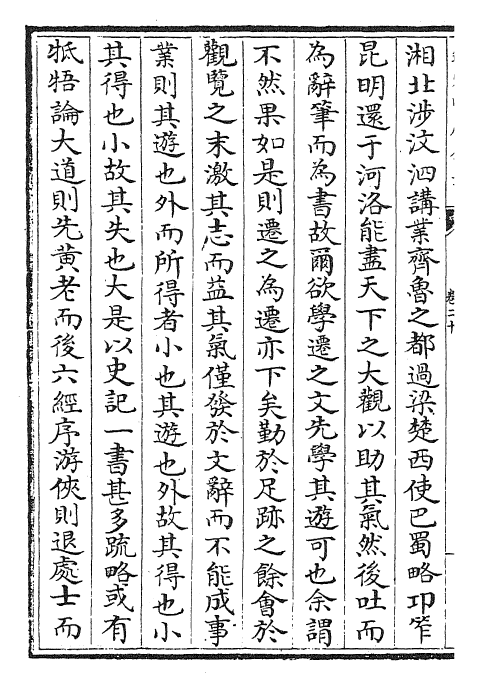 湘北涉汶泗講業齊魯之都過梁楚西使巴蜀略邛筰
昆明還于河洛能盡天下之大觀以助其氣然後吐而
為辭筆而為書故爾欲學遷之文先學其遊可也余謂
不然果如是則遷之為遷亦下矣勤於足跡之餘會於
觀覽之末激其志而益其氣僅發於文辭而不能成事
業則其遊也外而所得者小也其遊也外故其得也小
其得也小故其失也大是以史記一書甚多疏略或有
牴牾論大道則先黄老而後六經序游俠則退處士而
卷二十